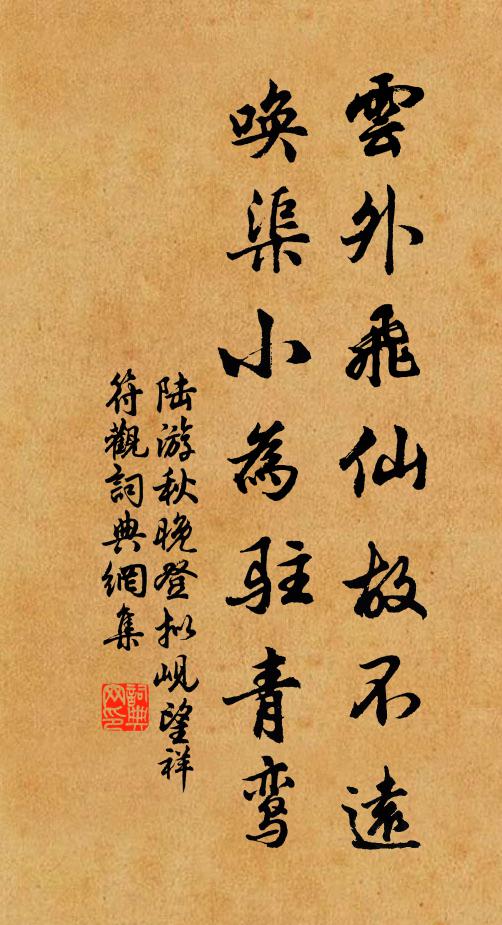 雲外飛仙故不遠
喚渠小為駐青鸾
陆游秋晚登拟岘望祥
符觀詞典網集
詞典
网印